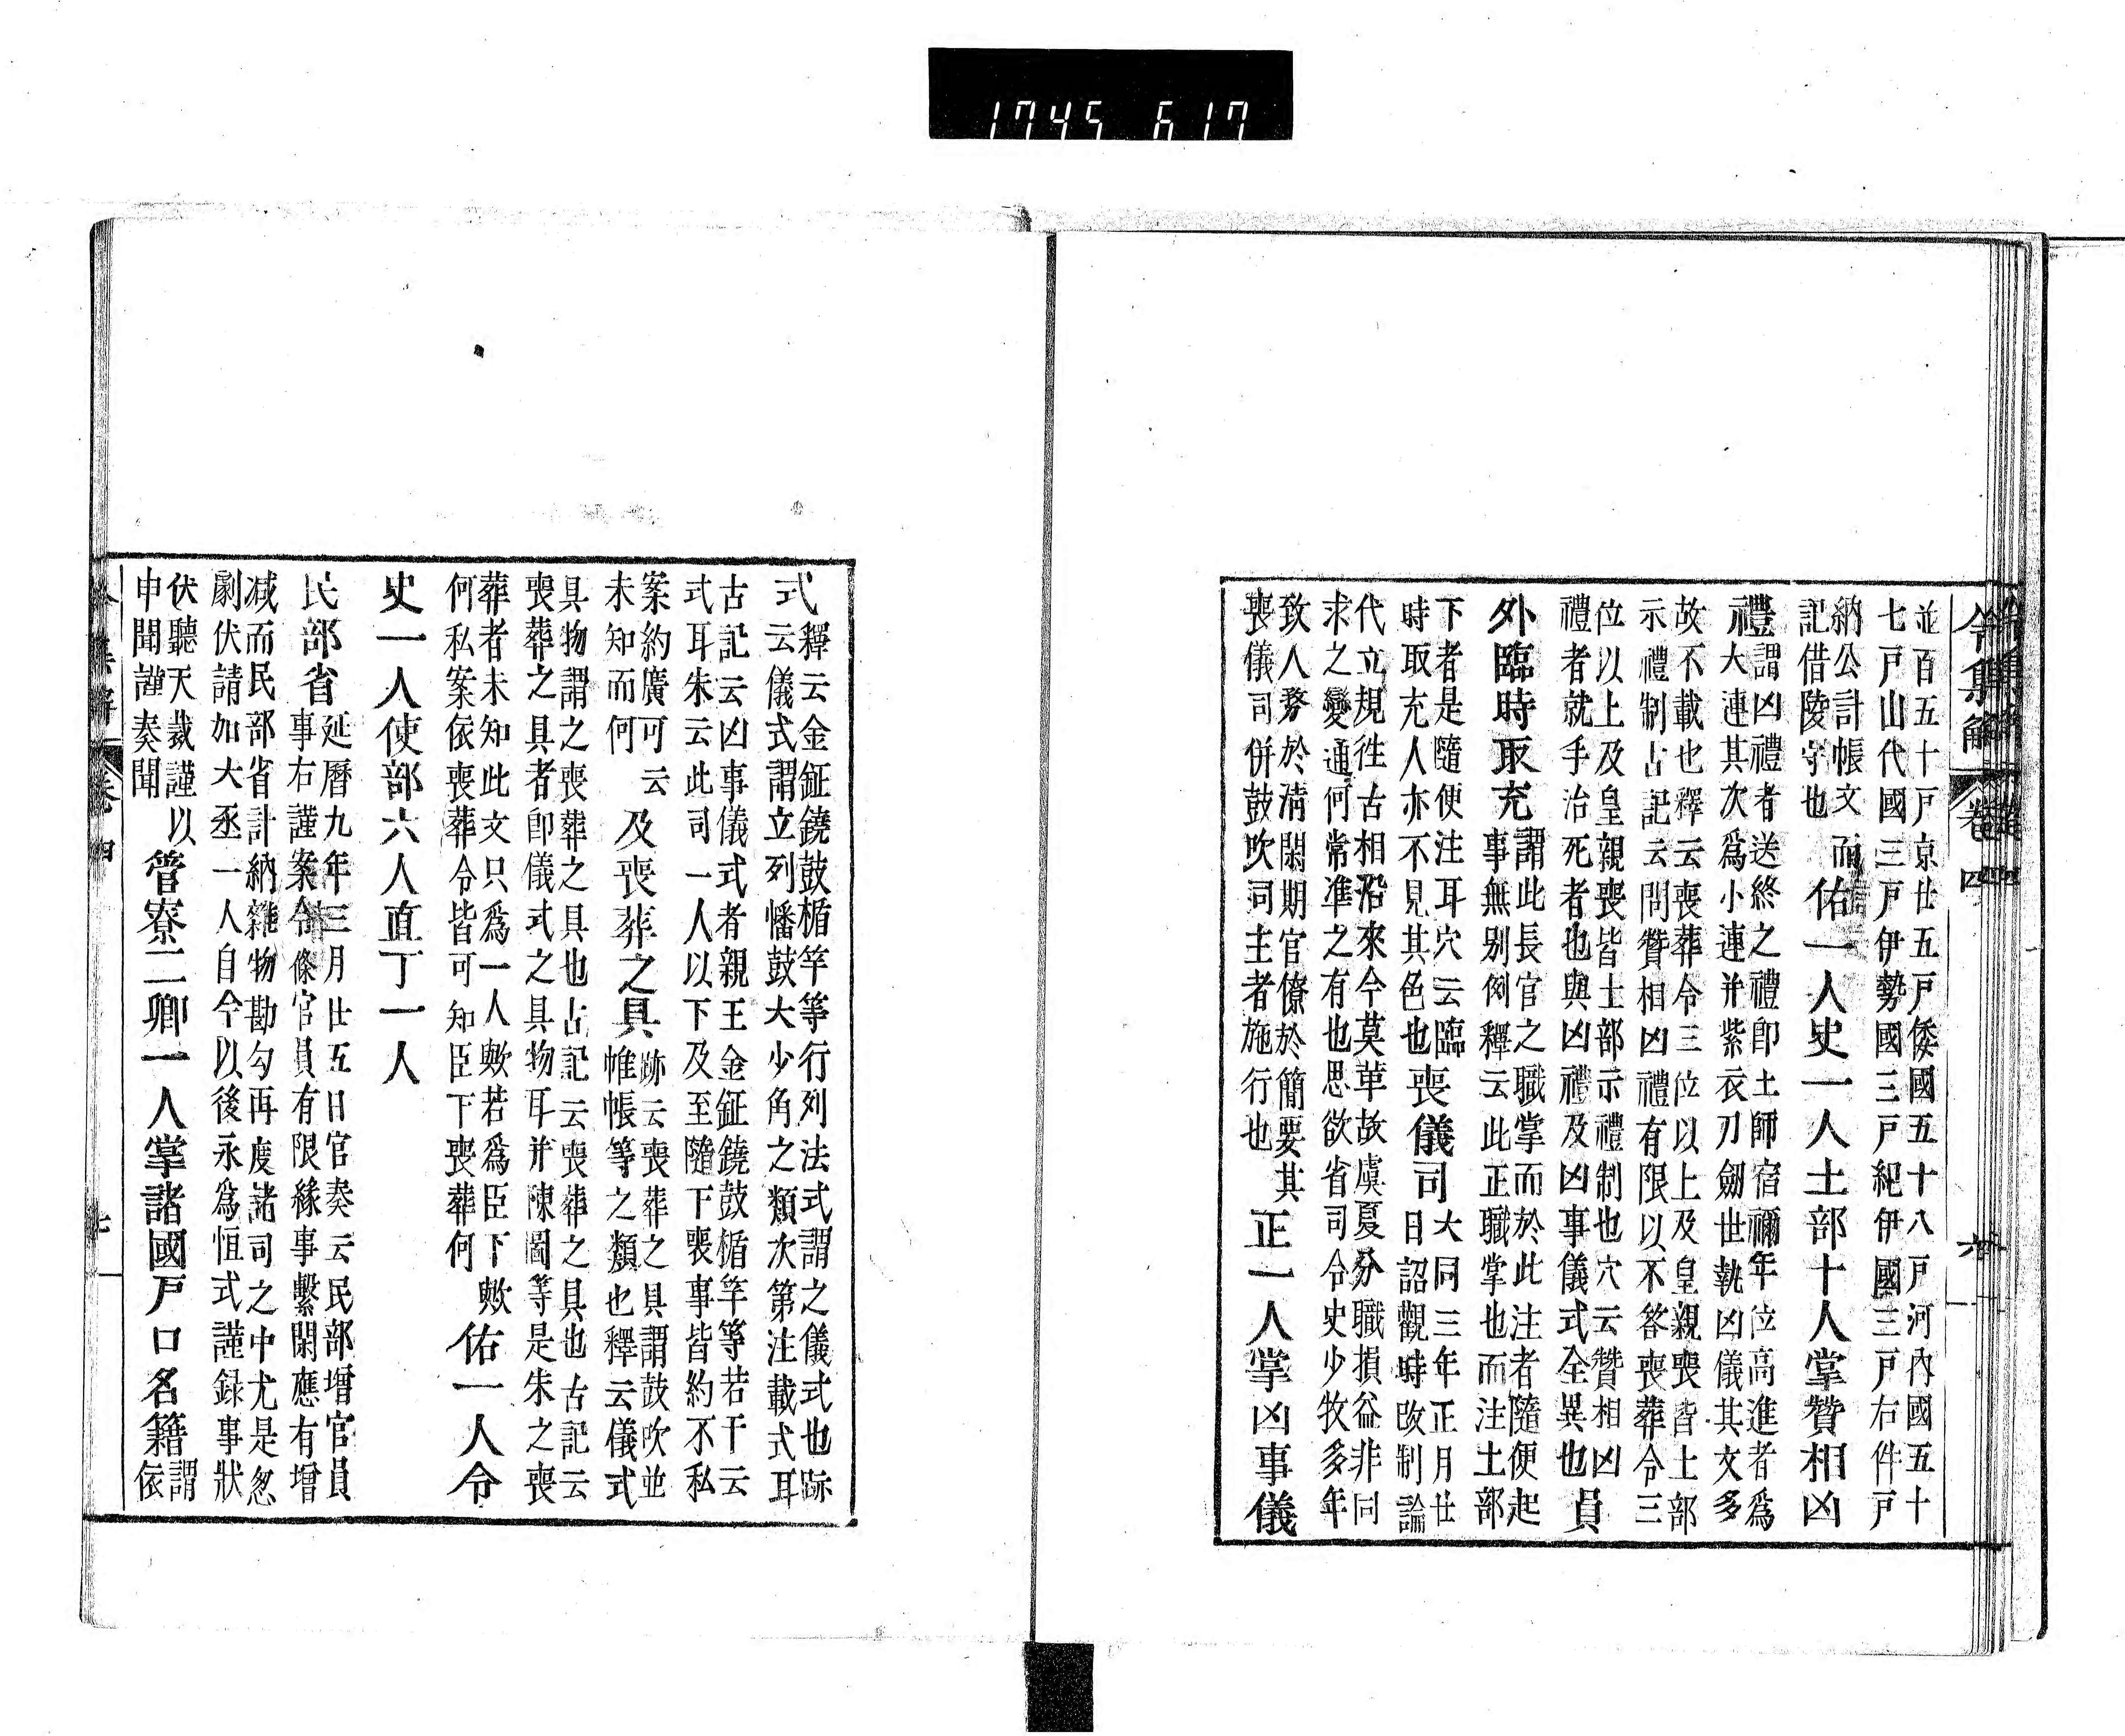 1745 617
令集解 卷四 六
並百五十戸京廿五戸倭國五十八戸河內國五十
七戸山代國三戸伊勢國三戸紀伊國三戸右件戸
納公計帳文而
記借陵守也
佑一人史一人土部十人掌贊相凶
禮
謂凶禮者送終之禮卽土師宿禰年位高進者爲
大連其次爲小連并紫衣刀劔世執凶儀其文多
故不載也釋云喪葬令三位以上及皇親喪皆土部
示禮制古記云問贊相凶禮有限以不答喪葬令三
位以上及皇親喪皆土部示禮制也穴云贊相凶
禮者就手治死者也與凶禮及凶事儀式全異也
員
外臨時取充
謂此長官之職掌而於此注者隨便起
事無別例釋云此正職掌也而注土部
下者是隨便注耳穴云臨
時取充人亦不見其色也
喪儀司
大同三年正月廿
日詔觀時改制論
代立規徃古相沿來今莫革故虞夏分職損益非同
求之變通何常準之有也思欲省司令史少牧多年
致人務於淸閑期官僚於簡要其
喪儀司併鼓吹司主者施行也
正一人掌凶事儀
式
釋云金鉦鐃鼓楯竿等行列法式謂之儀式也跡
云儀式謂立列幡鼓大少角之類次第注載式耳
古記云凶事儀式者親王金鉦鐃鼓楯竿等若干云
式耳朱云此司一人以下及至隨下喪事皆約不私
案約廣可云
未知而何
及喪葬之具
跡云喪葬之具謂鼓吹並
帷帳等之類也釋云儀式
具物謂之喪葬之具也古記云喪葬之具也古記云
喪葬之具者卽儀式之具物耳并陳圖等是朱之喪
葬者未知此文只爲一人歟若爲臣下歟
何私案依喪葬令皆可知臣下喪葬何
佑一人令
史一人使部六人直丁一人
民部省
延曆九年三月廿五日官奏云民部增官員
事右謹案令條官員有限緣事繫閑應有增
減而民部省計納雜物勘勾再度諸司之中尤是怱
劇伏請加大丞一人自今以後永爲恒式謹録事狀
伏聽天裁謹以
申聞謹奏聞
管寮二卿一人掌諸國戸口名籍
謂
依
令集解 卷四 七